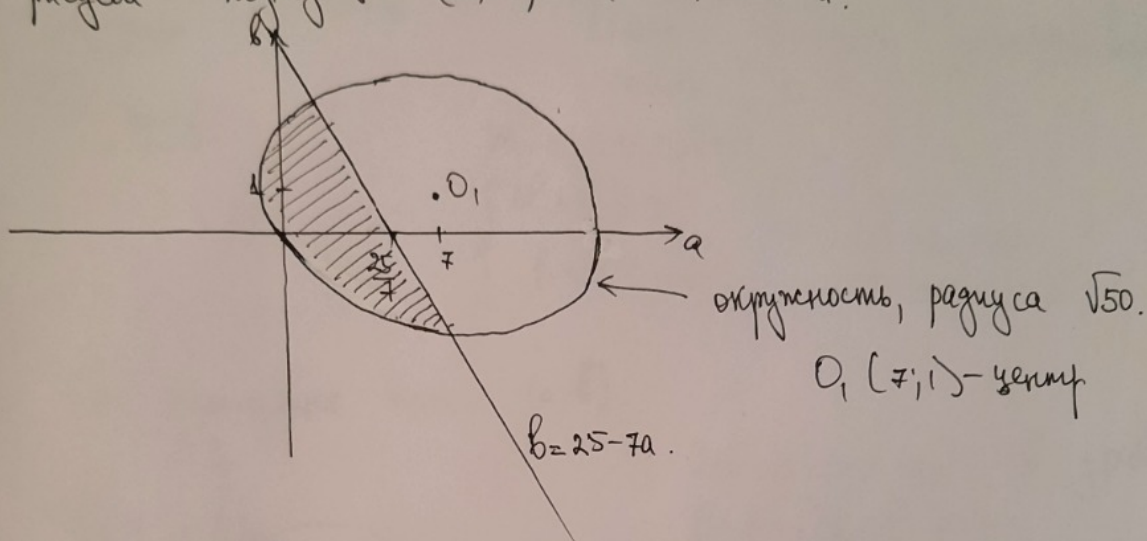 в
1
O₁
25
7
7
a
окружность, радиуса √50.
O₁ (7; 1) – центр
в = 25 – 7a.